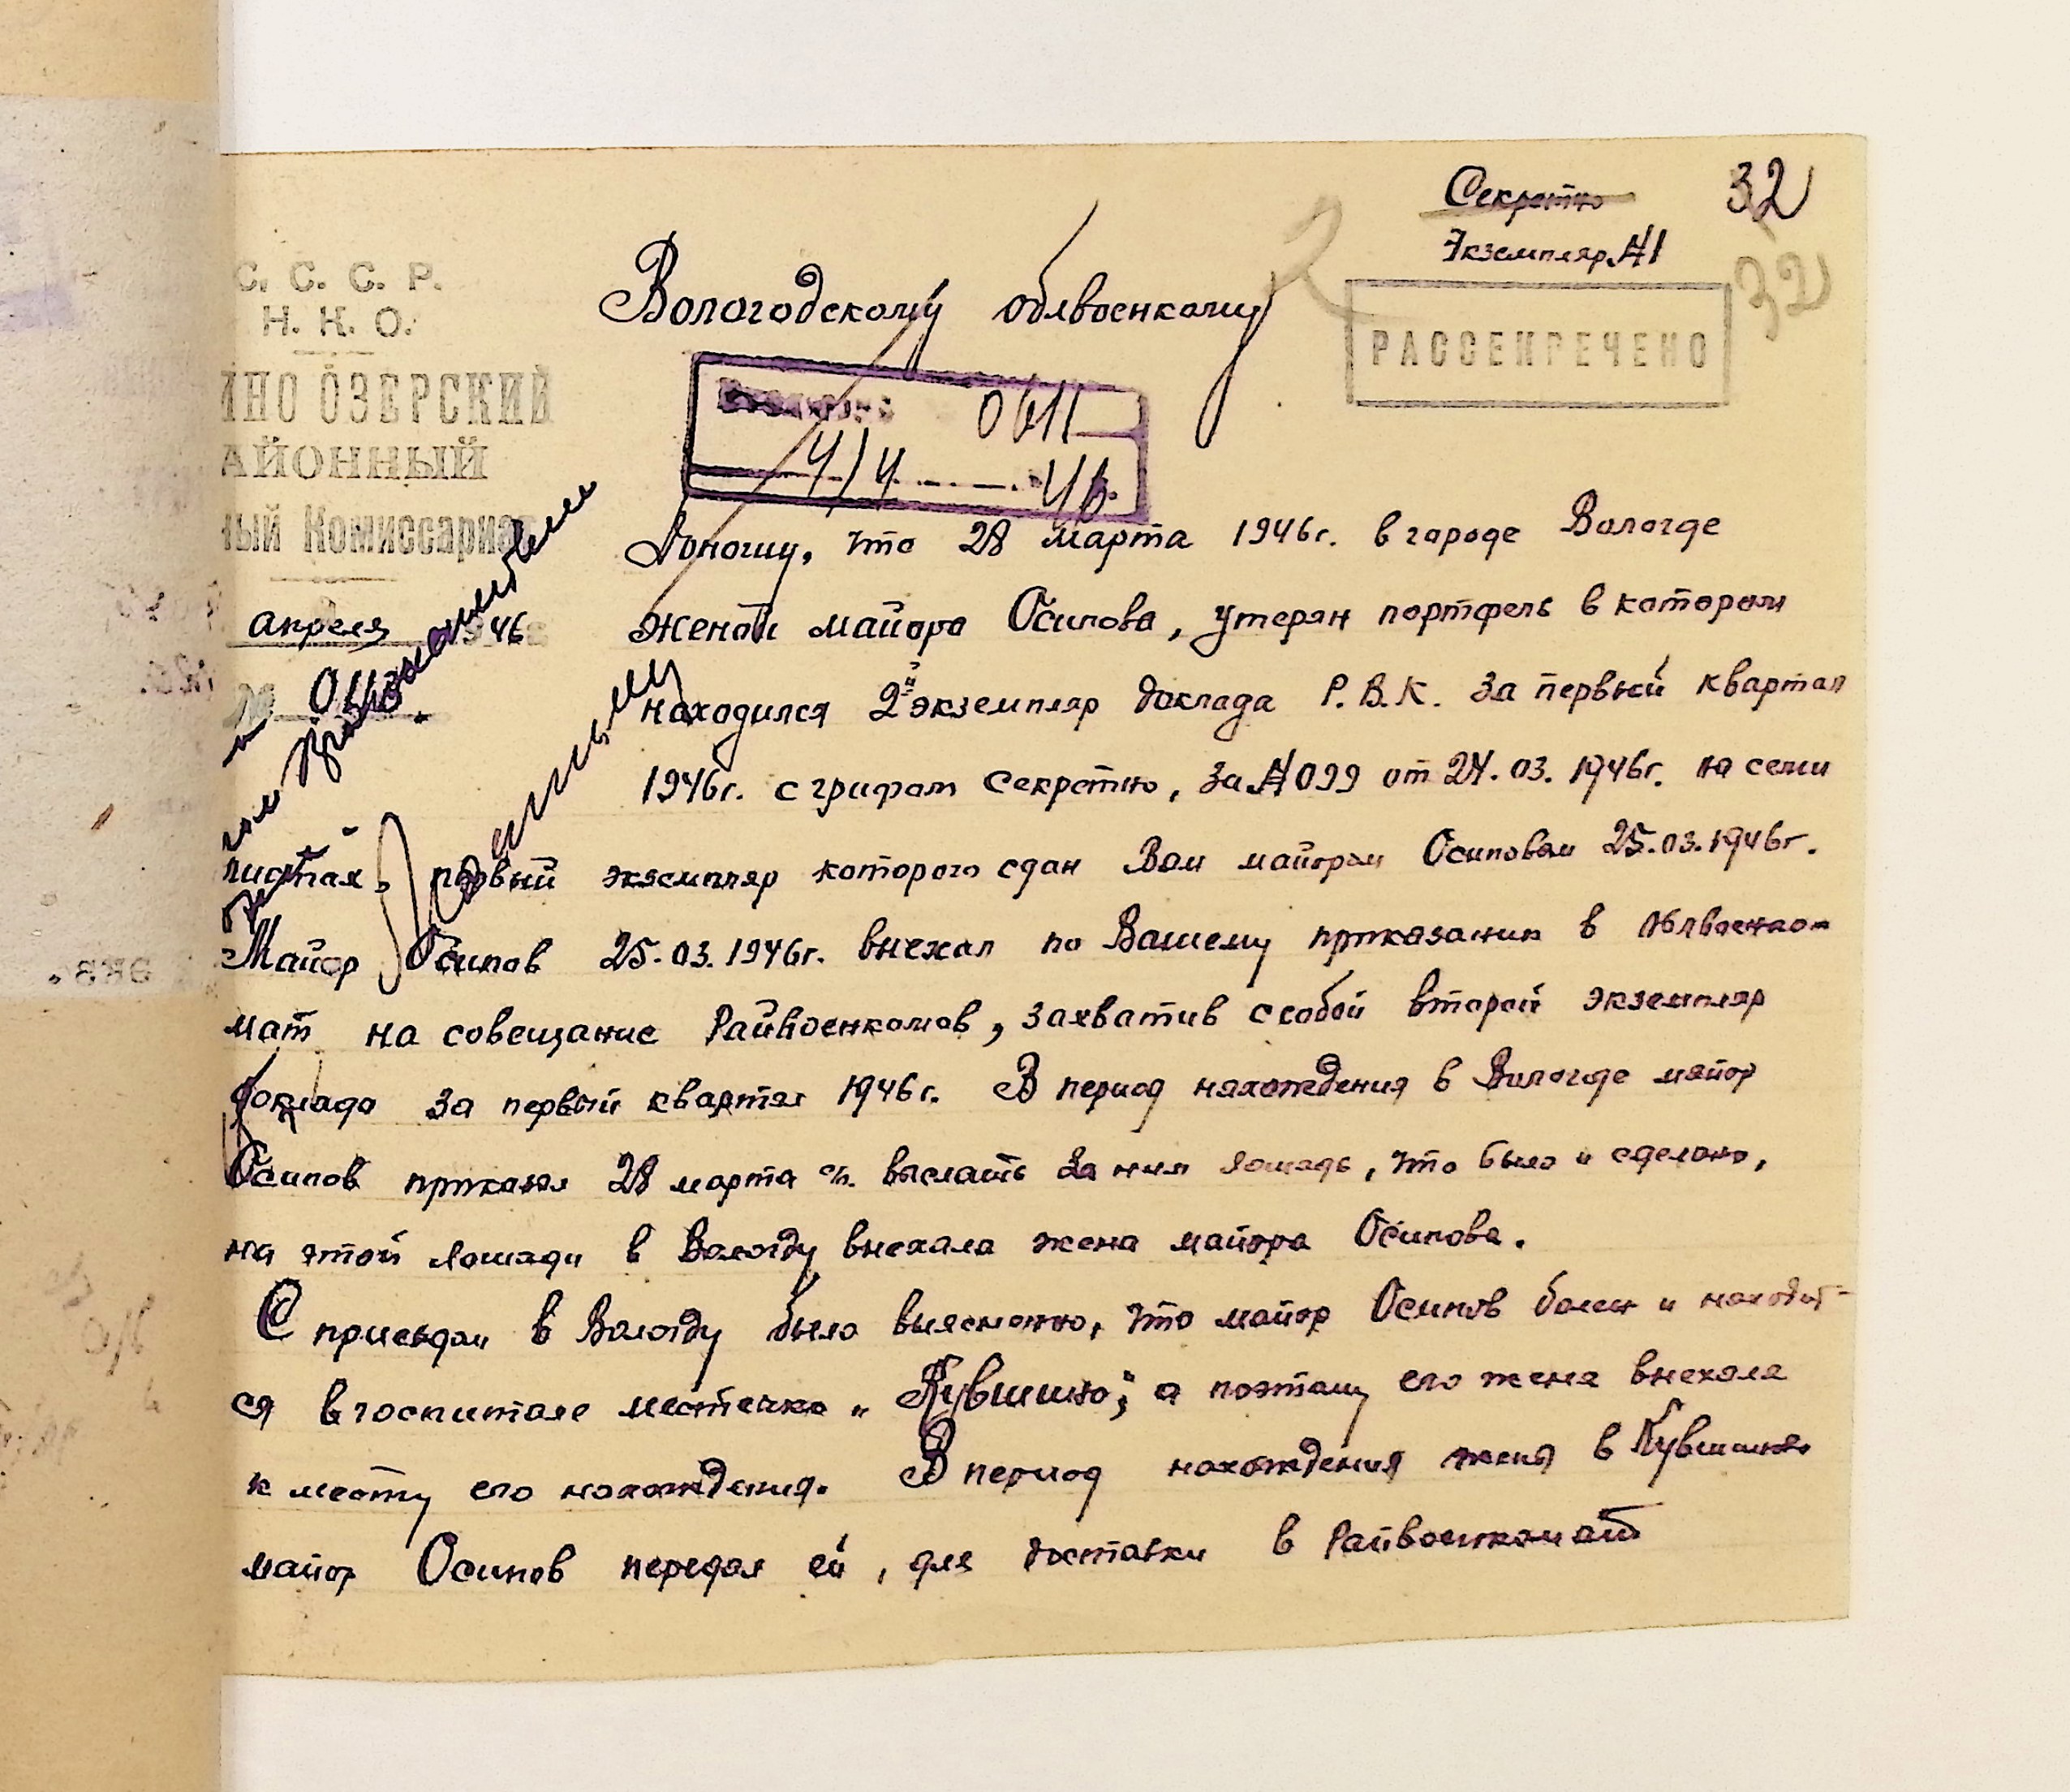 Секретно 32
Экземпляр №1
32
РАССЕКРЕЧЕНО
С. С. С. Р.
Н. К. О.
ИНО ОЗЕРСКИЙ
АЙОННЫЙ
ный Комиссариат
апреля 1946
Вологодскому облвоенкому
0611
4/4
Доношу, что 28 марта 1946г. в городе Вологде
женой майора Осипова, утерян портфель в котором
находился 2й экземпляр доклада Р.В.К. за первый квартал
1946г. с грифом секретно, за №099 от 24.03.1946г. на семи
листах, первый экземпляр которого сдан Вам майором Осиповым 25.03.1946г.
Майор Осипов 25.03.1946г. выехал по Вашему приказанию в Облвоенко-
мат на совещание Райвоенкомов, захватив с собой второй экземпляр
доклада за первый квартал 1946г. В период нахождения в Вологде майор
Осипов приказал 28 марта с/г. выслать за ним лошадь, что было и сделано,
на этой лошади в Вологду выехала жена майора Осипова.
С приездом в Вологду было выяснено, что майор Осипов болен и находит-
ся в госпитале местечка „Кувшино", а поэтому его жена выехала
к месту его нахождения. В период нахождения жены в Кувшино
майор Осипов передал ей, для доставки в Райвоенкомат